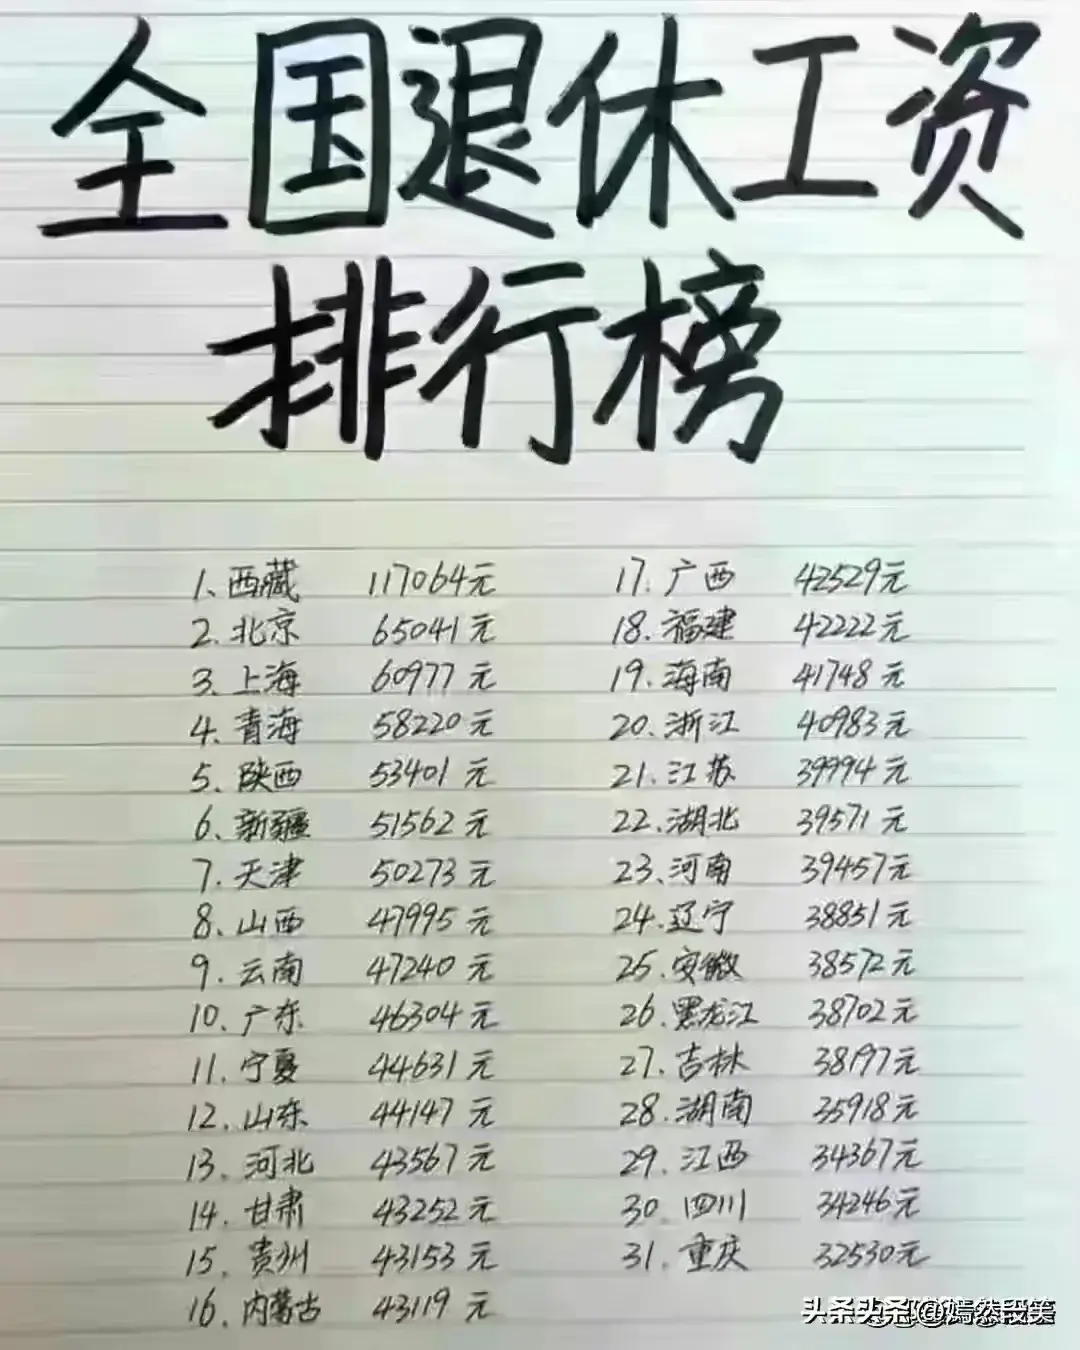 全国退休工资
排行榜
1、西藏 117064元
2、北京 65041元
3、上海 60977元
4、青海 58220元
5、陕西 53401元
6、新疆 51562元
7、天津 50273元
8、山西 47995元
9、云南 47240元
10、广东 46304元
11、宁夏 44631元
12、山东 44147元
13、河北 43567元
14、甘肃 43252元
15、贵州 43153元
16、内蒙古 43119元
17、广西 42529元
18、福建 42222元
19、海南 41748元
20、浙江 40983元
21、江苏 39994元
22、湖北 39571元
23、河南 39457元
24、辽宁 38851元
25、安徽 38572元
26、黑龙江 38702元
27、吉林 38197元
28、湖南 35918元
29、江西 34367元
30、四川 34246元
31、重庆 32530元
头条 @嫣然段笑